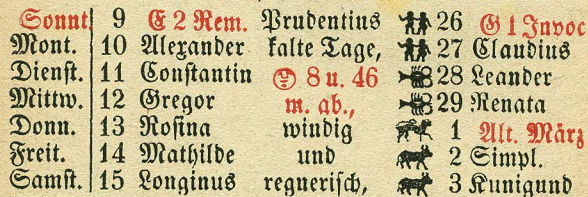 Sonnt. 9 E 2 Rem. Prudentius 26 G 1 Invoc
Mont. 10 Alexander kalte Tage, 27 Claudius
Dienst. 11 Constantin 8 u. 46 28 Leander
Mittw. 12 Gregor m. ab., 29 Renata
Donn. 13 Rosina windig 1 Alt. März
Freit. 14 Mathilde und 2 Simpl.
Samst. 15 Longinus regnerisch, 3 Kunigund